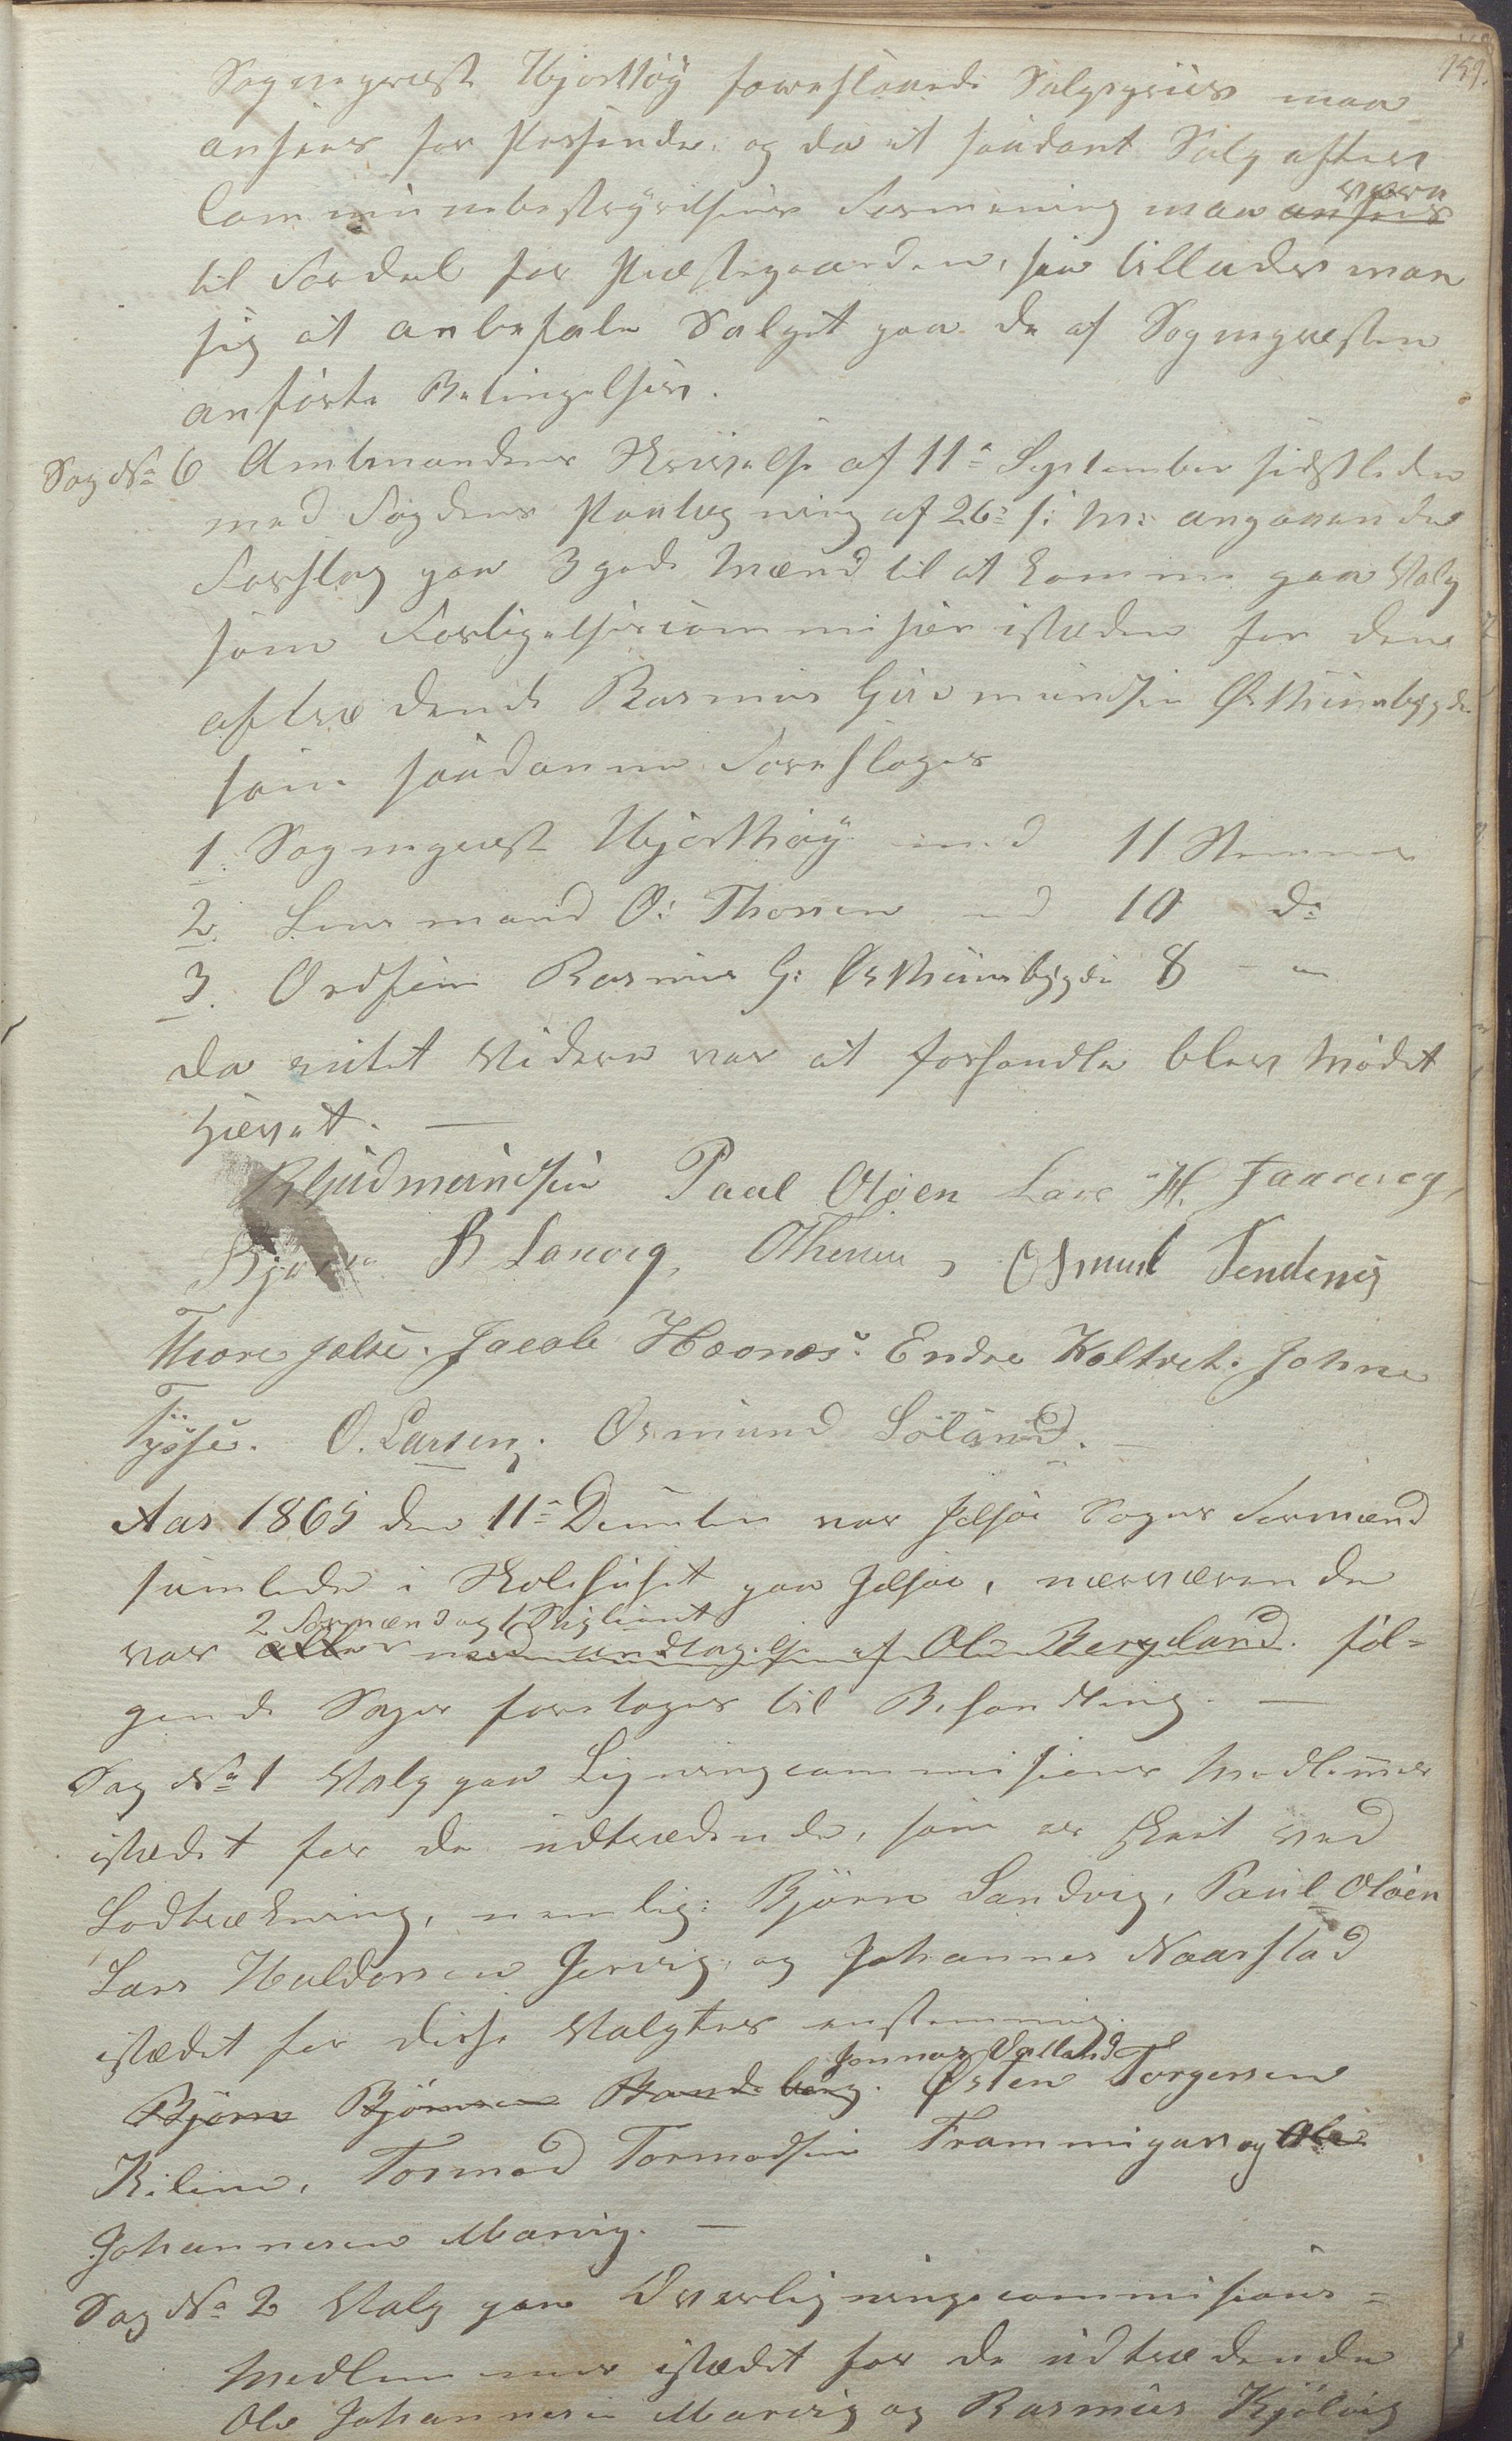 159.
Sogneprest Hjorthøÿ forestaaende Salgspriis maa
ansees for passende, og da et saadant Salg efter
Communebestyrelsens Formening maa ansees være
til Fordeel for Præstegaarden, saa tillader man
sig at anbefale Salget paa de af Sognepresten
anførte Betingelser.
Sag No 6 Amtmandens Skrivelse af 11te September sidstleden
med Fogdens Paategning af 26de s: M: angaaende
Forslag paa 3 gode Mænd til at komme paa Valg
som Forligelsescommisær istæden for den
aftrædende Rasmus Gudmundsen Østhunsbygde
som saadanne Foreslages
1. Sogneprest Hjorthøÿ med 11 Stemmer
2. Lensmand O: Thorsen med 10 do
3. Ordfører Rasmus G: Østhunsbygde 8 - "
da intet videre var at forhandle blev Mødet
hævet. —
R Gudmundsen Paal Oløen Lars H. Faaveg,
Bjørn B Sanvig, OThorsen, Osmul Tendenes
Thore Jelse. Jacob Hæones. Endre Koltvet. Johne
Tÿsse. O. Larsen. Osmund Søland.
Aar 1865 den 11te December var Jelsøe Sogns Formænd
samlede i Skolehuset paa Jelsøe, nærværende
var alle med undtagelse af Ole Bergeland. føl-
2 Formænd og 1 Supliant
gende Sager foretoges til Behandling. —
Sag No 1 Valg paa Ligningscommisions Medlemmer
istædet for de udtrædende, som er skeet ved
Lodtrækning, nemlig: Bjørn Sandvig, Paul Oløen
Lars Haldorsen Jervig, og Johannes Naarstad
istædet for disse Valgtes enstemmig.
Bjørn Bjørnsen Sandeberg. Gunnar Valland Østen Torgersen
Kilene, Tormod Tormodsen Frammigaar og Ole
Johannesen Marvig. —
Sag No 2 Valg paa Overligningscommisions-
Medlemmer istædet for de udtrædende
Ole Johannesen Marvig og Rasmus Kjølvig